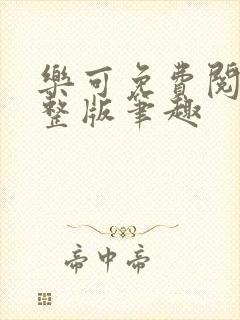 樂可免費閱
整版筆趣
帝中帝